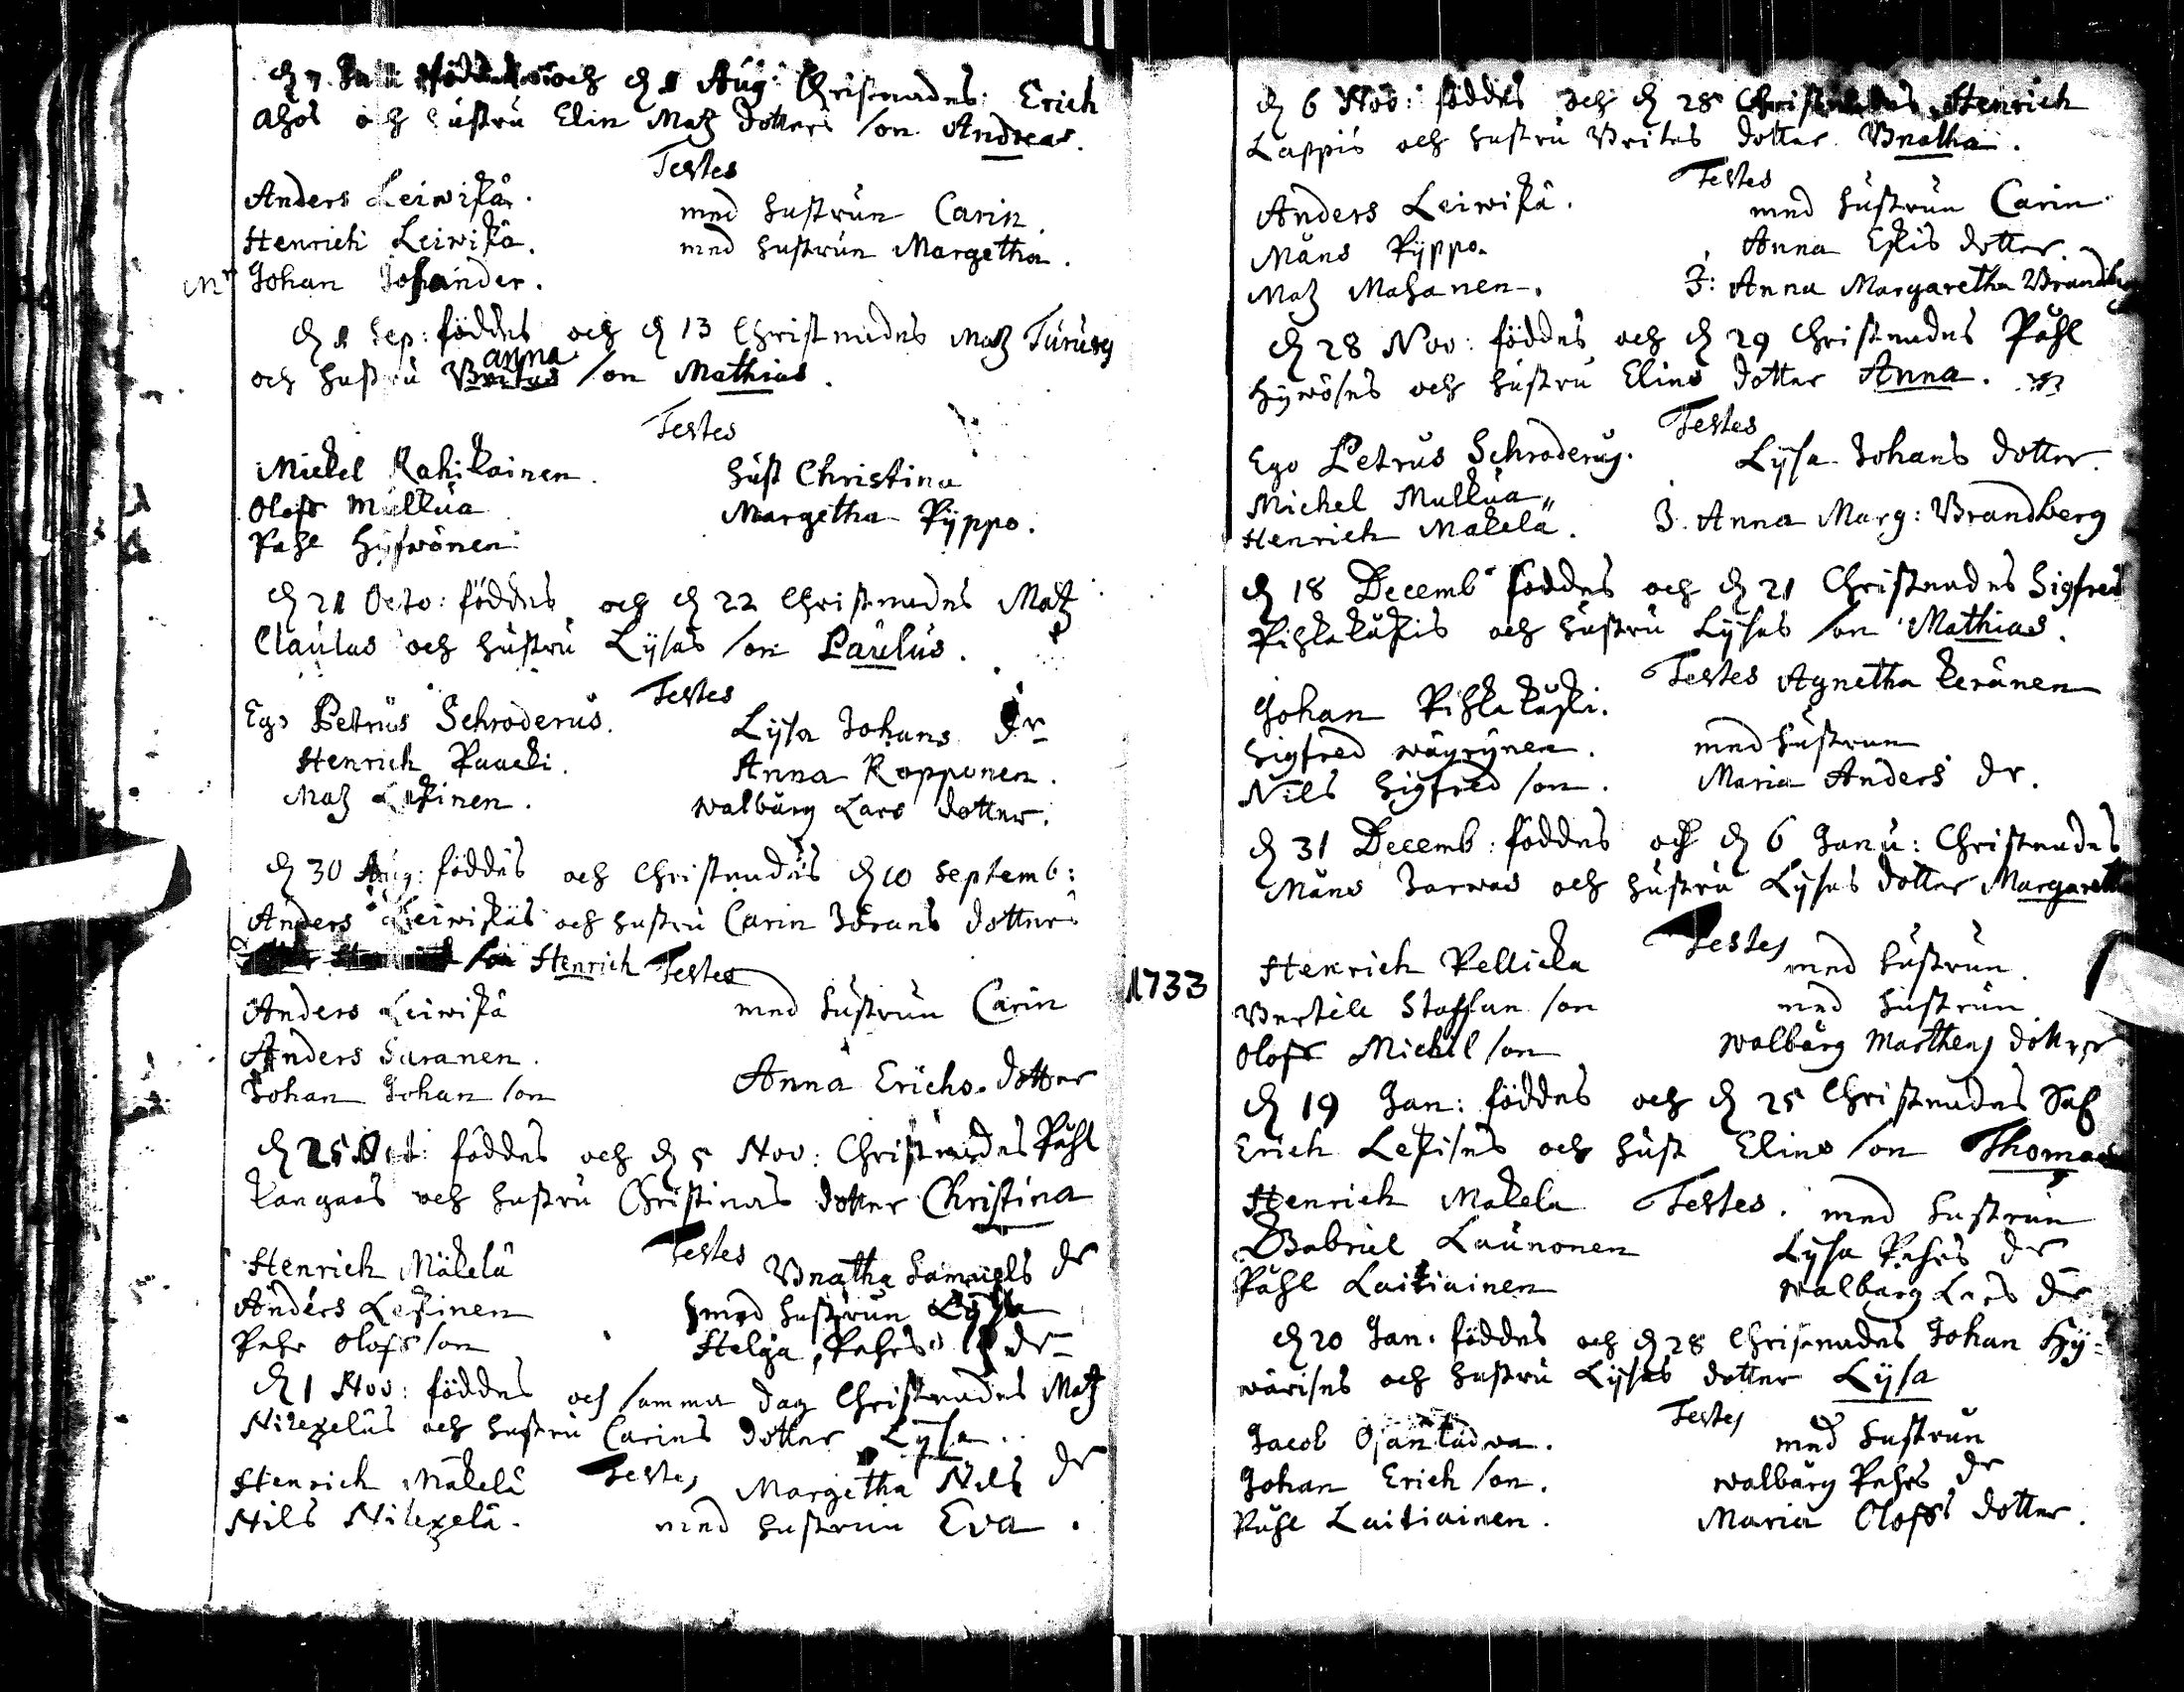 föddes och d 1 Aug: Christnades Erich
Ahos och hustru Elin Matz dotters son Andreas.
Testes
Anders Leiwiskä. med hustrun Carin.
Henrich Leiwiskä. med hustrun Margetha.
Mr Johan Johander.
d 8 Sep: föddes och d 13 Christnades Matz Turuses
anna
och hustru Britas son Mathias.
Testes
Mickel Kahikainen. hust Christina
Oloff Mulkua Margetha Pyppo.
Påhl Hyfwönen
d 21 Octo: föddes och d 22 Christnades Matz
Claulas och hustru Lysas son Paulus.
Testes
Ego Petrus Schroderus. Lysa Johans dr
Henrich Paacki. Anna Ropponen.
Matz Leskinen. Walbårg Lars dotter.
d 30 Aug: föddes och Christnades d 10 Septemb:
Anders Leiwiskäs och hustru Carin Jörans dotters
son Henrich Testes
Anders Leiwiskä med hustrun Carin
Anders Saranen.
Johan Johan son Anna Erichs dotter
d 25 Oct: föddes och d 5 Nov: Christnades Påhl
Kangaas och hustru Christinas dotter Christina
Testes
Henrich Mäkelä Bneatha Samuels dr
Anders Leskinen med hustrun Lysa
Pehr Olofs son Helga Pehrs dr
d 1 Nov: föddes och samma dag Christnades Matz
Niskeläs och hustru Carins dotter Lysa.
Henrich Mäkelä Testes Margetha Nils dr
Nils Niskelä. med hustrun Eva.
d 6 Nov: föddes och d 28 Christnades Henrich
Lappis och hustru Britas dotter Bneatha.
Testes
Anders Leiwiskä. med hustrun Carin
Måns Pyppo. Anna Eskis dotter.
Matz Mahanen. J: Anna Margaretha Brandberg
d 28 Nov: föddes och d 29 Christnades Påhl
Hywöses och hustru Elins dotter Anna.
Testes
Ego Petrus Schroderus. Lysa Johans dotter.
Michel Mulkua
Henrich Mäkelä. J. Anna Marg: Brandberg
d 18 Decemb föddes och d 21 Christnades Sigfred
Pihlakåskis och hustru Lysas son Mathias.
Testes Agnetha Keränen
Johan Pihlakåski.
Sigfred Wäyrynen. med hustrun
Nils Sigfred son. Maria Anders dr.
d 31 Decemb: föddes och d 6 Janu: Christnades
Måns Jarwas och hustru Lysas dotter Margaretha
Testes
Henrich Pellicka med hustrun.
1733
Bertell Staffan son med hustrun.
Oloff Michel son Walbårg Marthens dotter
d 19 Jan: föddes och d 25 Christnades Sal
Erich Leskises och hust Elins son Thomas
Henrich Makela Testes. med hustrun
Gabriel Launonen Lysa Pehrs dr
Påhl Laitiainen Walbårg Lars dr
d 20 Jan. föddes och d 28 Christnades Johan Hy=
wärises och hustru Lysas dotter Lysa
Testes
Jacob Ojantadwa. med hustrun
Johan Erich son. Walbårg Pehrs dr
Påhl Laitiainen. Maria Olofs dotter.